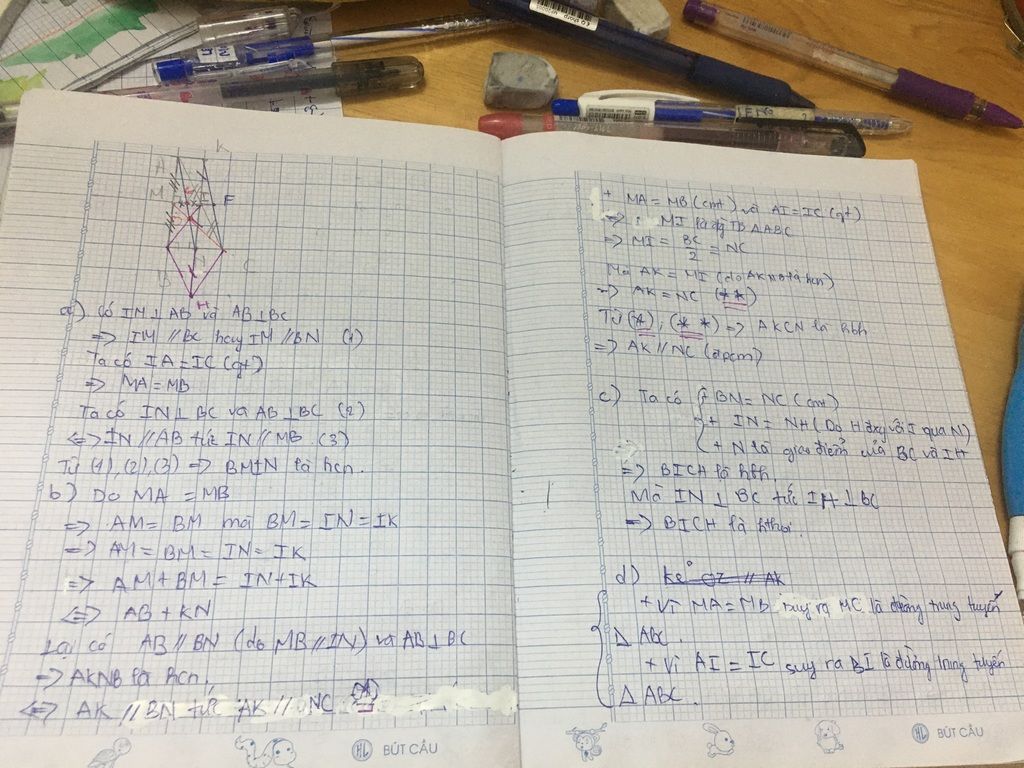 A
K
M
I
F
B
N
C
H
a) Có IM ⊥ AB và AB ⊥ BC
=> IM // BC hay IM // BN (1)
Ta có IA = IC (gt)
=> MA = MB
Ta có IN ⊥ BC và AB ⊥ BC (2)
<=> IN // AB tức IN // MB (3)
Từ (1), (2), (3) => BMIN là hcn.
b) Do MA = MB
=> AM = BM mà BM = IN = IK
=> AM = BM = IN = IK
=> AM + BM = IN + IK
<=> AB + KN
Lại có AB // BN (do MB // IN) và AB ⊥ BC
=> AKNB là hcn.
<=> AK // BN tức AK // NC (*)
+ MA = MB (cmt) và AI = IC (gt)
=> MI là đg TB ΔABC
=> MI = BC/2 = NC
Mà AK = MI (do AKNB là hcn)
=> AK = NC (**)
Từ (*), (**) => AKCN là hbh
=> AK // NC (đpcm)
c) Ta có + BN = NC (cmt)
+ IN = NH (Do H đxg với I qua N)
+ N là giao điểm của BC và IH
=> BICH là hbh.
Mà IN ⊥ BC tức IH ⊥ BC
=> BICH là hthoi.
d) Kẻ // AK
+ Vì MA = MB suy ra MC là đường trung tuyến
Δ ABC.
+ Vì AI = IC suy ra BI là đường trung tuyến
Δ ABC.
HL BÚT CÂU
HL BÚT CÂU